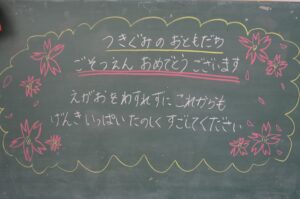 つきぐみの おともだち
ごそつえん おめでとう ございます
えがおを わすれずに これからも
げんき いっぱい たのしく すごしてください